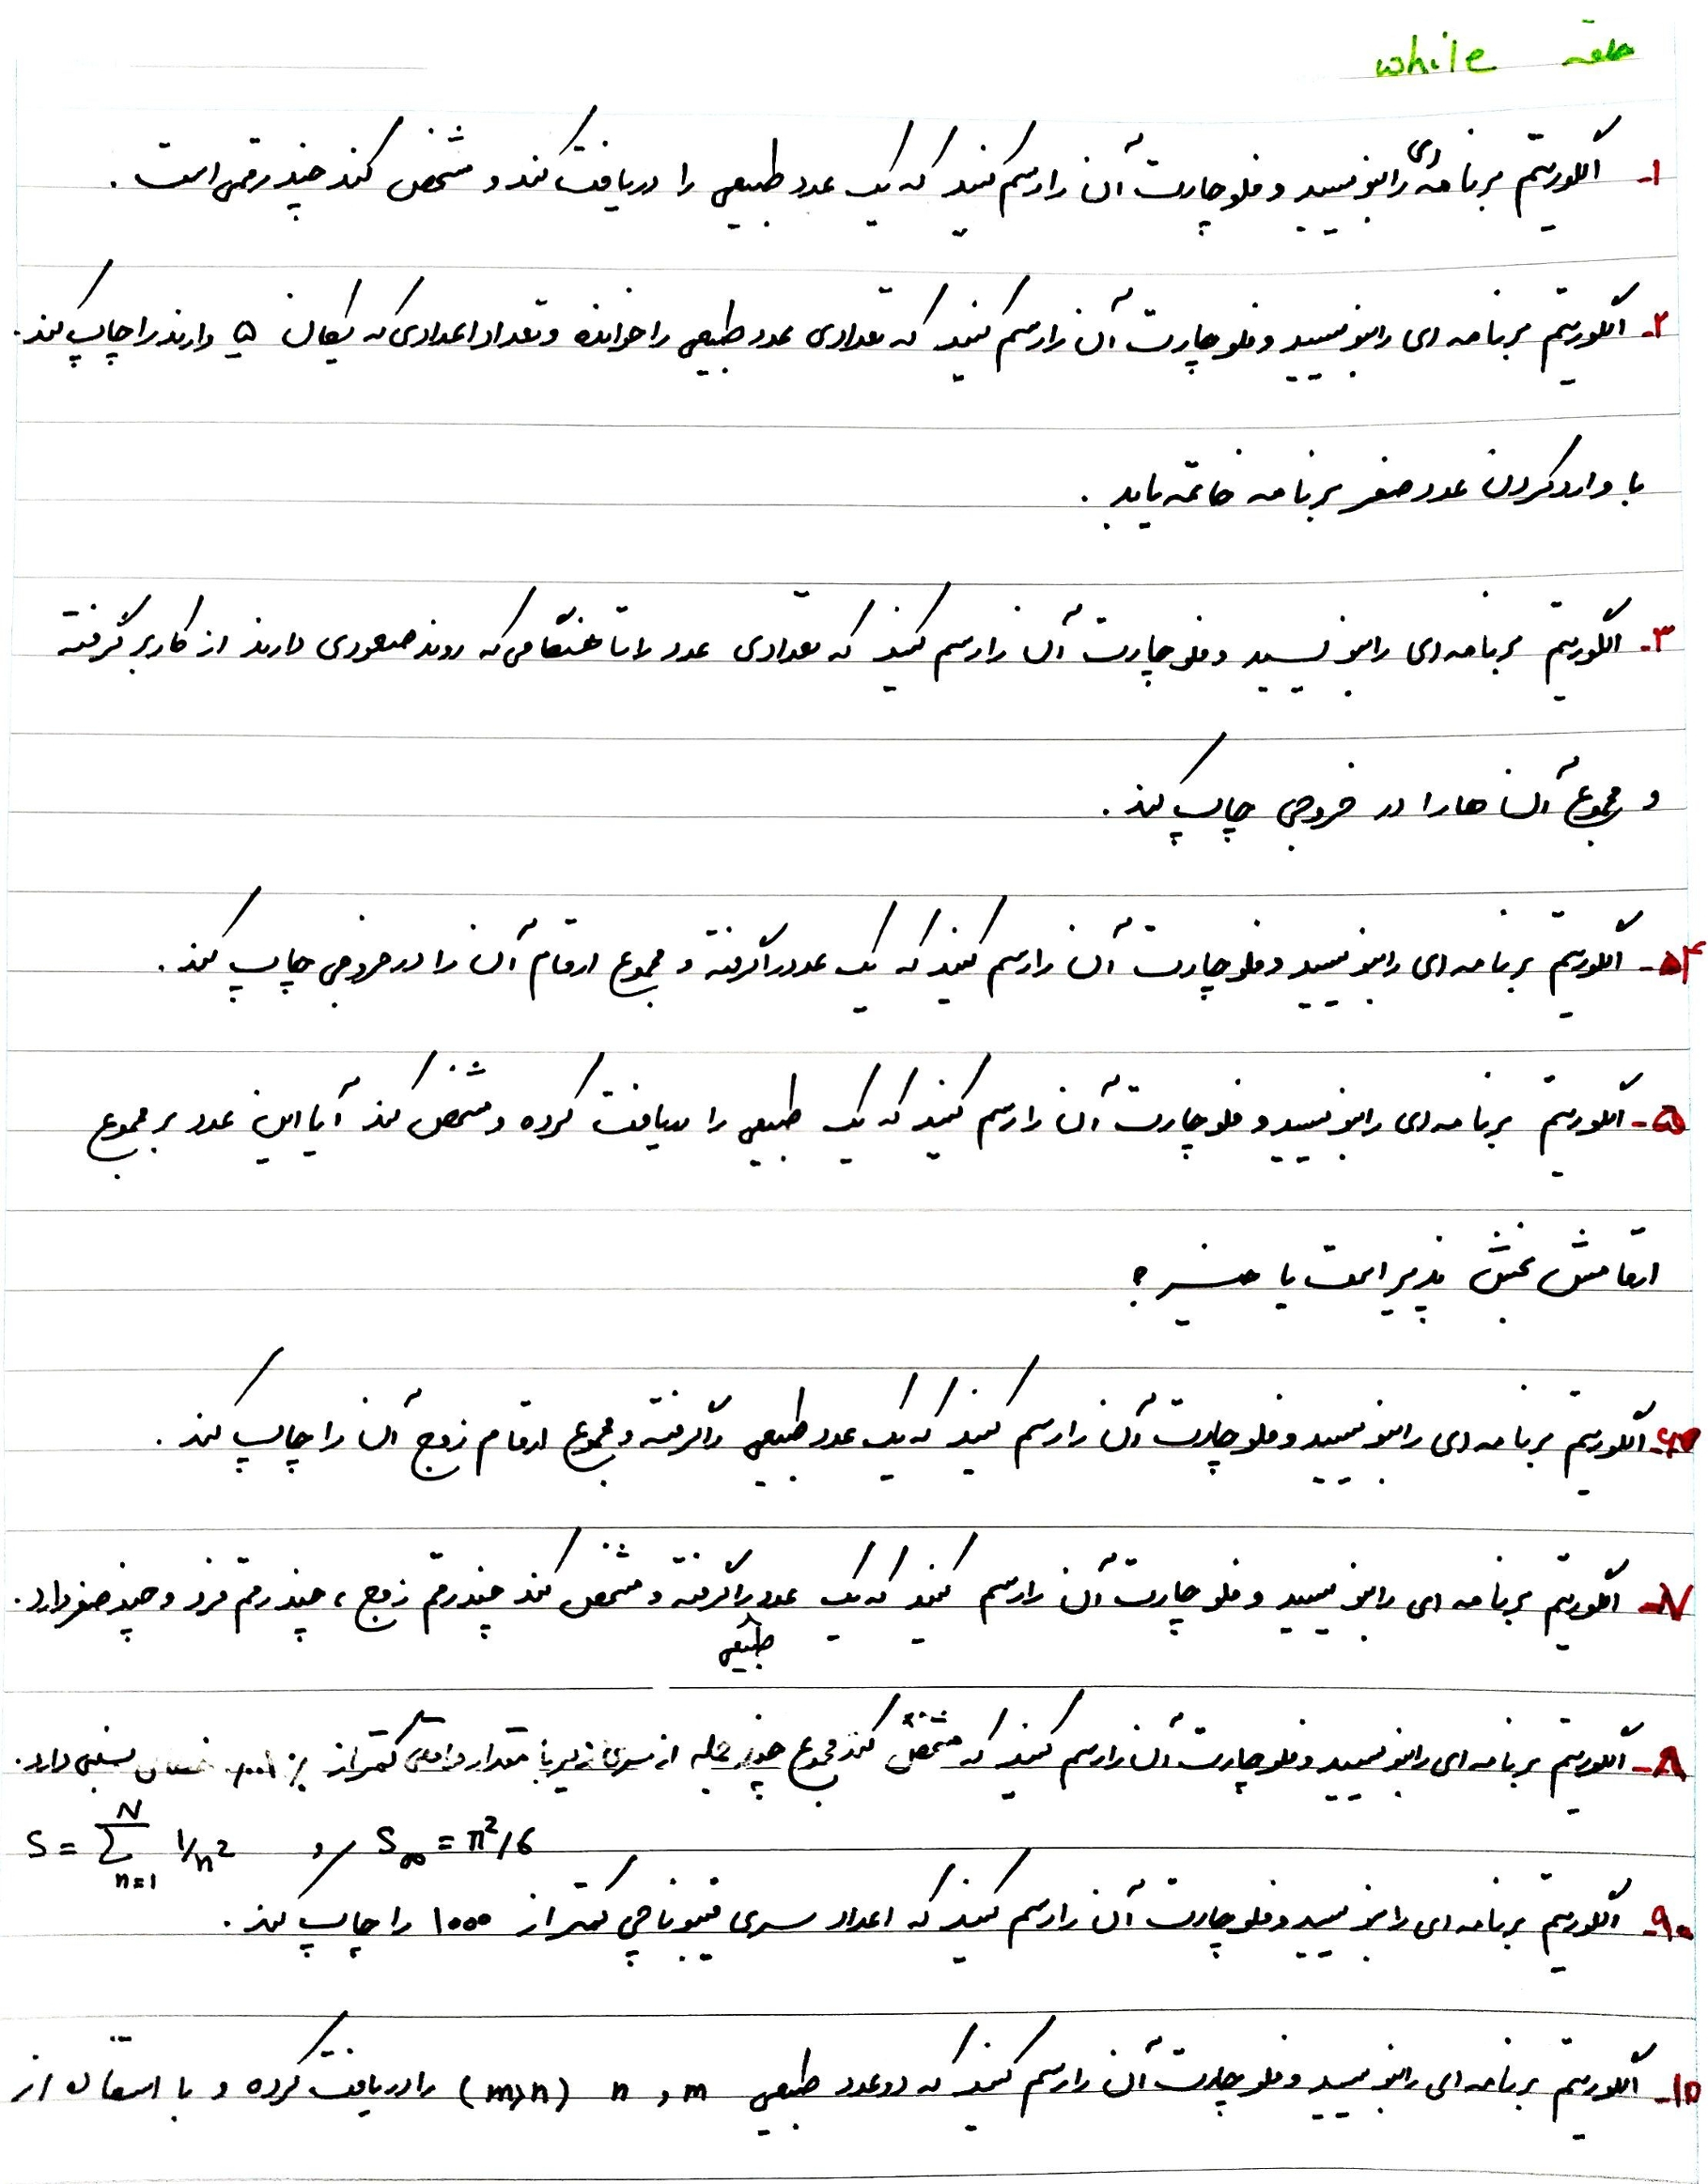 حلقه while
۱- الگوریتم برنامه ای را بنویسید و فلوچارت آن را رسم کنید که یک عدد طبیعی را دریافت کند و مشخص کند چند رقمی است .
۲- الگوریتم برنامه ای را بنویسید و فلوچارت آن را رسم کنید که تعدادی عدد طبیعی را خوانده و تعداد اعدادی که یکان ۵ دارند را چاپ کند.
با وارد کردن عدد صفر برنامه خاتمه یابد .
۳- الگوریتم برنامه ای را بنویسید و فلوچارت آن را رسم کنید که تعدادی عدد را تا هنگامی که روند صعودی دارند از کاربر گرفته
و مجموع آن ها را در خروجی چاپ کند .
۴- الگوریتم برنامه ای را بنویسید و فلوچارت آن را رسم کنید که یک عدد را گرفته و مجموع ارقام آن را در خروجی چاپ کند .
۵- الگوریتم برنامه ای را بنویسید و فلوچارت آن را رسم کنید که یک طبیعی را دریافت کرده و مشخص کند آیا این عدد بر مجموع
ارقامش بخش پذیر است یا خیر ؟
۶- الگوریتم برنامه ای را بنویسید و فلوچارت آن را رسم کنید که یک عدد طبیعی را گرفته و مجموع ارقام زوج آن را چاپ کند .
۷- الگوریتم برنامه ای را بنویسید و فلوچارت آن را رسم کنید که یک عدد طبیعی را گرفته و مشخص کند چند رقم زوج ، چند رقم فرد و چند صفر دارد .
۸- الگوریتم برنامه ای را بنویسید و فلوچارت آن را رسم کنید که مشخص کند مجموع چند جمله از سری زیر با مقدار واقعی کمتر از نسبی دارد .
S = ∑_{n=1}^{N} 1/n² و S∞ = π²/6
۹- الگوریتم برنامه ای را بنویسید و فلوچارت آن را رسم کنید که اعداد سری فیبوناچی کمتر از ۱۰۰۰ را چاپ کند .
۱۰- الگوریتم برنامه ای را بنویسید و فلوچارت آن را رسم کنید که دو عدد طبیعی m و n (m>n) را دریافت کرده و با استفاده از